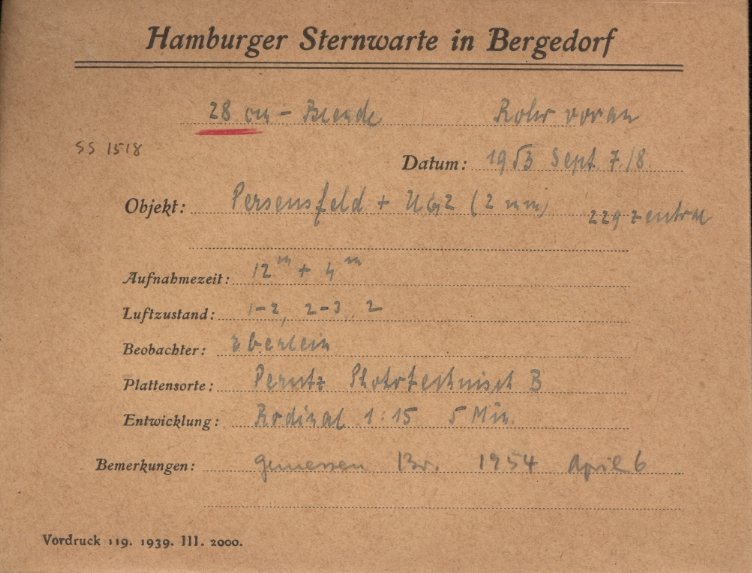 Hamburger Sternwarte in Bergedorf
28 cm - Blende Rohr voran
SS 1518
Datum: 1953 Sept 7/8
Objekt: Perseusfeld + UG2 (2 mm) 229 zentral
Aufnahmezeit: 12ᵐ + 4ᵐ
Luftzustand: 1-2, 2-3, 2
Beobachter: Eberlein
Plattensorte: Perutz Phototechnisch B
Entwicklung: Rodinal 1:15 5 Min.
Bemerkungen: gemessen Br. 1954 April 6
Vordruck 119. 1939. III. 2000.